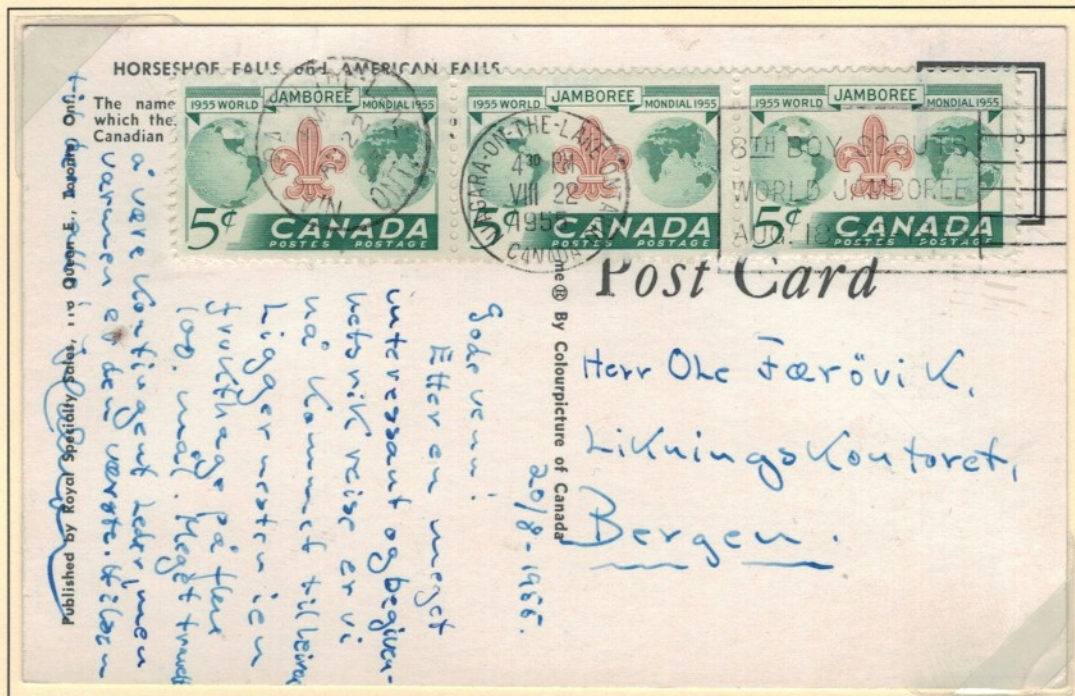 HORSESHOE FALLS and AMERICAN FALLS
The name
which the
Canadian
1955 WORLD JAMBOREE MONDIAL 1955
5¢ CANADA
POSTES POSTAGE
1955 WORLD JAMBOREE MONDIAL 1955
5¢ CANADA
POSTES POSTAGE
1955 WORLD JAMBOREE MONDIAL 1955
5¢ CANADA
POSTES POSTAGE
22
ONT.
NIAGARA-ON-THE-LAKE ONTARIO
4 30 PM
VIII 22
1955
CANADA
8TH BOY SCOUTS
WORLD JAMBOREE
AUG. 18
Post Card
me® By Colourpicture of Canada
Published by Royal Specialty Sales, Queen E., Ont.
20/8-1955.
Gode venn!
Etter en meget
interessant og begiven-
hetsrik reise er vi
nå kommet til leiren
Ligger nesten i en
frukthage på flere
100. mål. Meget travelt
å være kontingentleder, men
varmen er den verste. Hilsen
Herr Ole Færövik,
Likningskontoret,
Bergen.